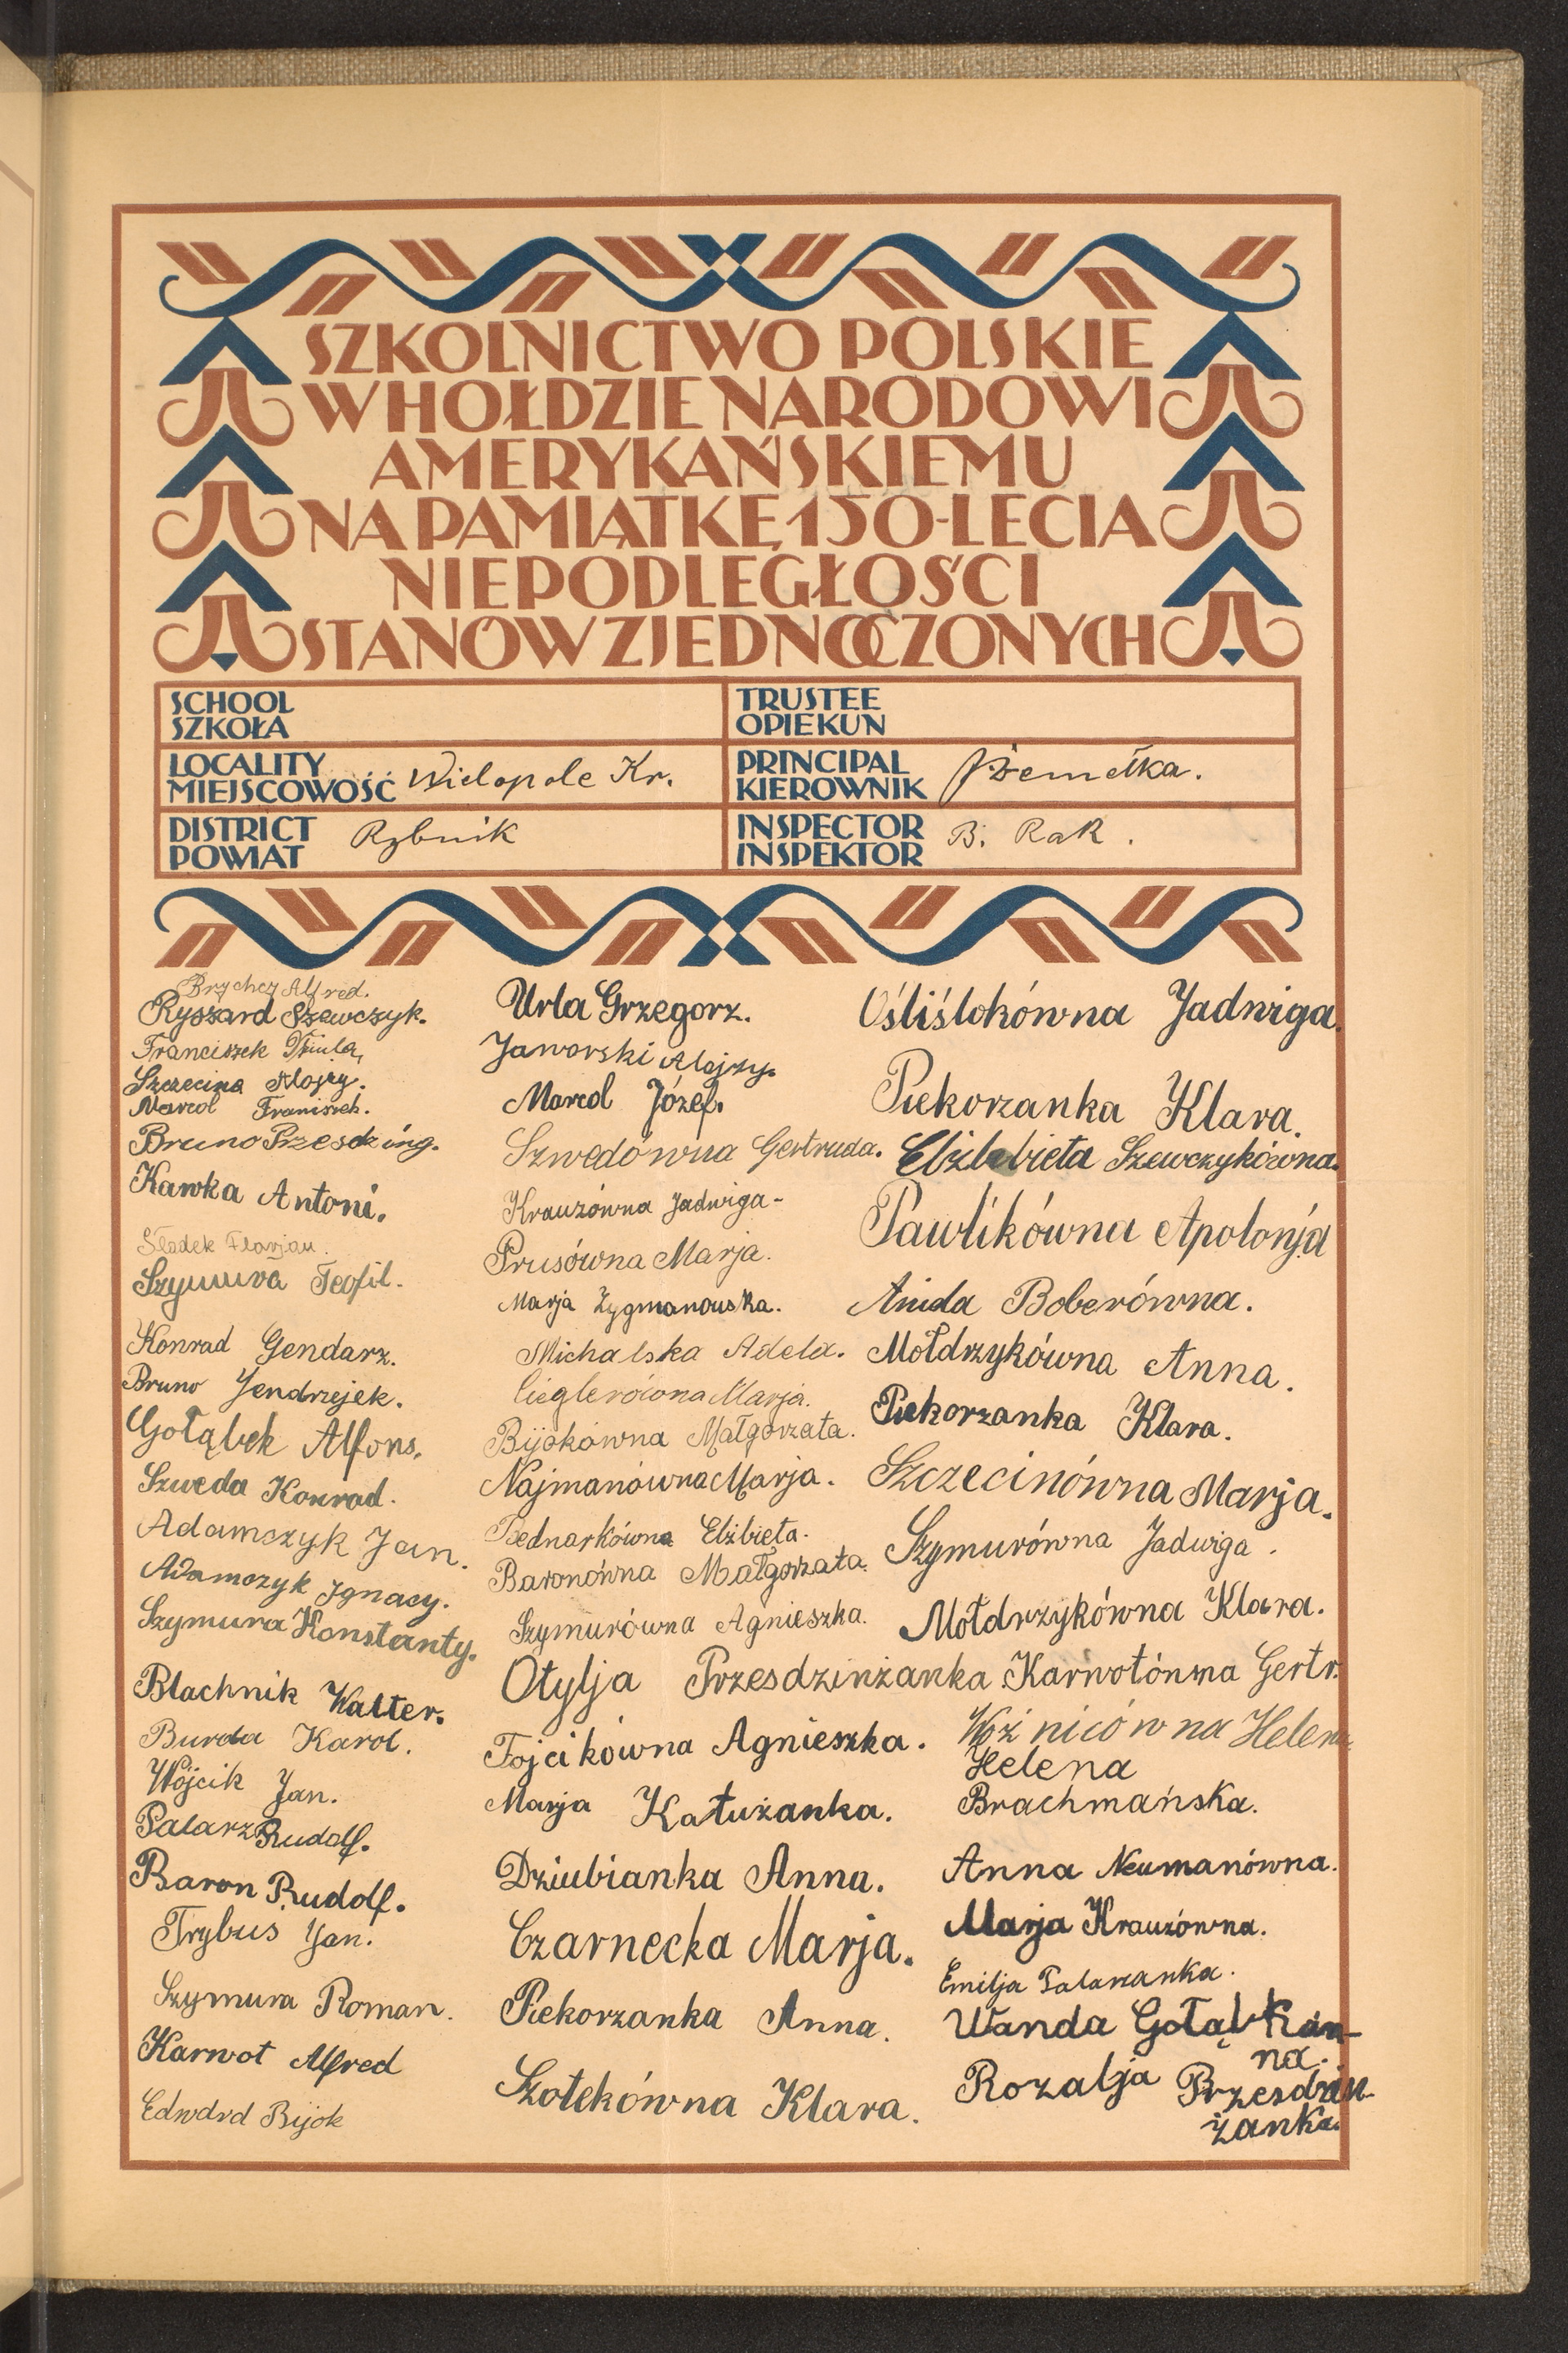 SZKOLNICTWO POLSKIE
W HOŁDZIE NARODOWI
AMERYKAŃSKIEMU
NA PAMIĄTKĘ 150-LECIA
NIEPODLEGŁOŚCI
STANÓW ZJEDNOCZONYCH
SCHOOL
SZKOŁA
TRUSTEE
OPIEKUN
LOCALITY
MIEJSCOWOŚĆ Wielopole Kr.
PRINCIPAL
KIEROWNIK
DISTRICT
POWIAT Rybnik
INSPECTOR
INSPEKTOR B. Rak.
Brychcy Alfred.
Ryszard Szewczyk.
Franciszek
Szczecina Alojzy.
Marcol Franiszek.
Bruno Przesdzing.
Kawka Antoni.
Śladek Florjan.
Szymura Teofil.
Konrad Gendarz.
Bruno Jendrzejek.
Gołąbek Alfons.
Szweda Konrad.
Adamczyk Jan.
Adamczyk Ignacy.
Szymura Konstanty.
Blachnik Walter.
Burda Karol.
Wójcik Jan.
Palarz Rudolf.
Baron Rudolf.
Trybus Jan.
Szymura Roman.
Karwot Alfred
Edward Bijok
Urla Grzegorz.
Jaworski Alojzy.
Marcol Józef.
Szwedówna Gertruda.
Krauzówna Jadwiga-
Prusówna Marja.
Marja Zygmanowska.
Michalska Adela.
Cieglerówna Marja.
Bijokówna Małgorzata.
Najmanówna Marja.
Bednarkówna Elżbieta.
Baronówna Małgorzata.
Szymurówna Agnieszka.
Otylja Przesdzinżanka
Fojcikówna Agnieszka.
Marja Katużanka.
Dziubianka Anna.
Czarnecka Marja.
Piekorzanka Anna.
Szotekówna Klara.
Uśliślokówna Jadwiga.
Piekorzanka Klara.
Elżbieta Szewczykówna.
Pawlikówna Apolonja
Anida Boberówna.
Mołdrzykówna Anna.
Piekorzanka Klara.
Szczecinówna Marja.
Szymurówna Jadwiga.
Mołdrzykówna Klara.
Karwotówna Gertr.
Woźnicówna Helena
Helena
Brachmańska.
Anna Neumanówna.
Marja Krauzówna.
Emilja Palarzanka.
Wanda Gołąbków-
na.
Rozalja Przesdzin-
żanka.